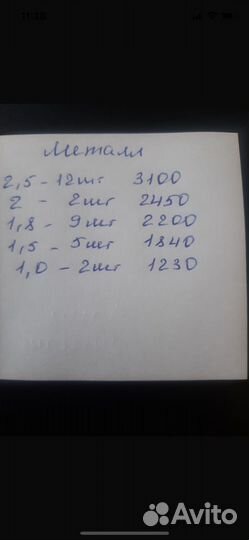 11:18
Металл
2,5 - 12шт 3100
2 - 2шт 2450
1,8 - 9шт 2200
1,5 - 5шт 1840
1,0 - 2шт 1230
Avito